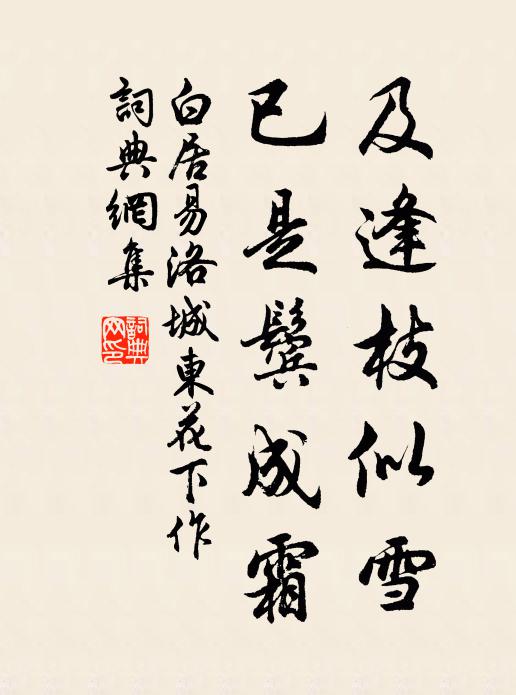 及逢枝似雪
已是鬓成霜
白居易洛城東花下作
詞典網集
詞典网印